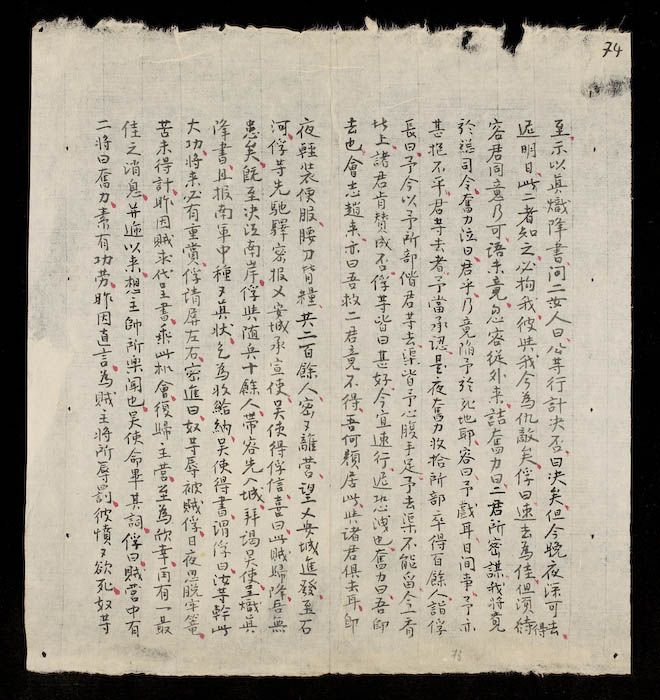 74
至示以真熾降書問二女人曰公等行計決否曰決矣但今晚夜深可去
遲明日此二者知之必拘我彼共我今為仇敵矣俘曰速去為佳但須待得
容君同意乃可語未竟忽容從外来詰奮力曰二君所密謀我將竟
於總司令奮力泣曰君乎乃竟陷予於死地耶容曰予戲耳日間事予亦
甚抱不平君等去者予當承認是夜奮力收拾所部卒得百餘人詣俘
長曰予今以予所部偕君等去渠皆予心腹手足予去渠不能留今一看
此上諸君肯贊成否俘等皆曰甚好今宜速行遲恐洩也奮力曰吾師
去也會志趙来亦曰吾救二君竟不得吾何顏居此共諸君俱去耳即
夜輕裝便服腰刀背糧共二百餘人密密離營望乂安城進發至石
河俘等先馳驛密报乂安城承宣使吳使得俘信喜曰此賊歸降吾無
患矣既至決江南岸俘共随兵十餘人帶容先入城拜謁吳使呈熾真
降書且报南軍中種種真狀乞為收給納吳使得書謂俘曰汝等幹此
大功將来必有重賞俘請屏左右密進曰奴等辱被賊俘日夜思脫牢篭
苦未得計昨因賊求代呈書乘此机會復歸主營至為欣幸再有一最
佳之消息并迤以来想主帥所樂聞也吳使命畢其詞俘曰賊營中有
二將曰奮力素有功劳昨因直言為賊主將所辱罰彼憤憤欲死奴等
75